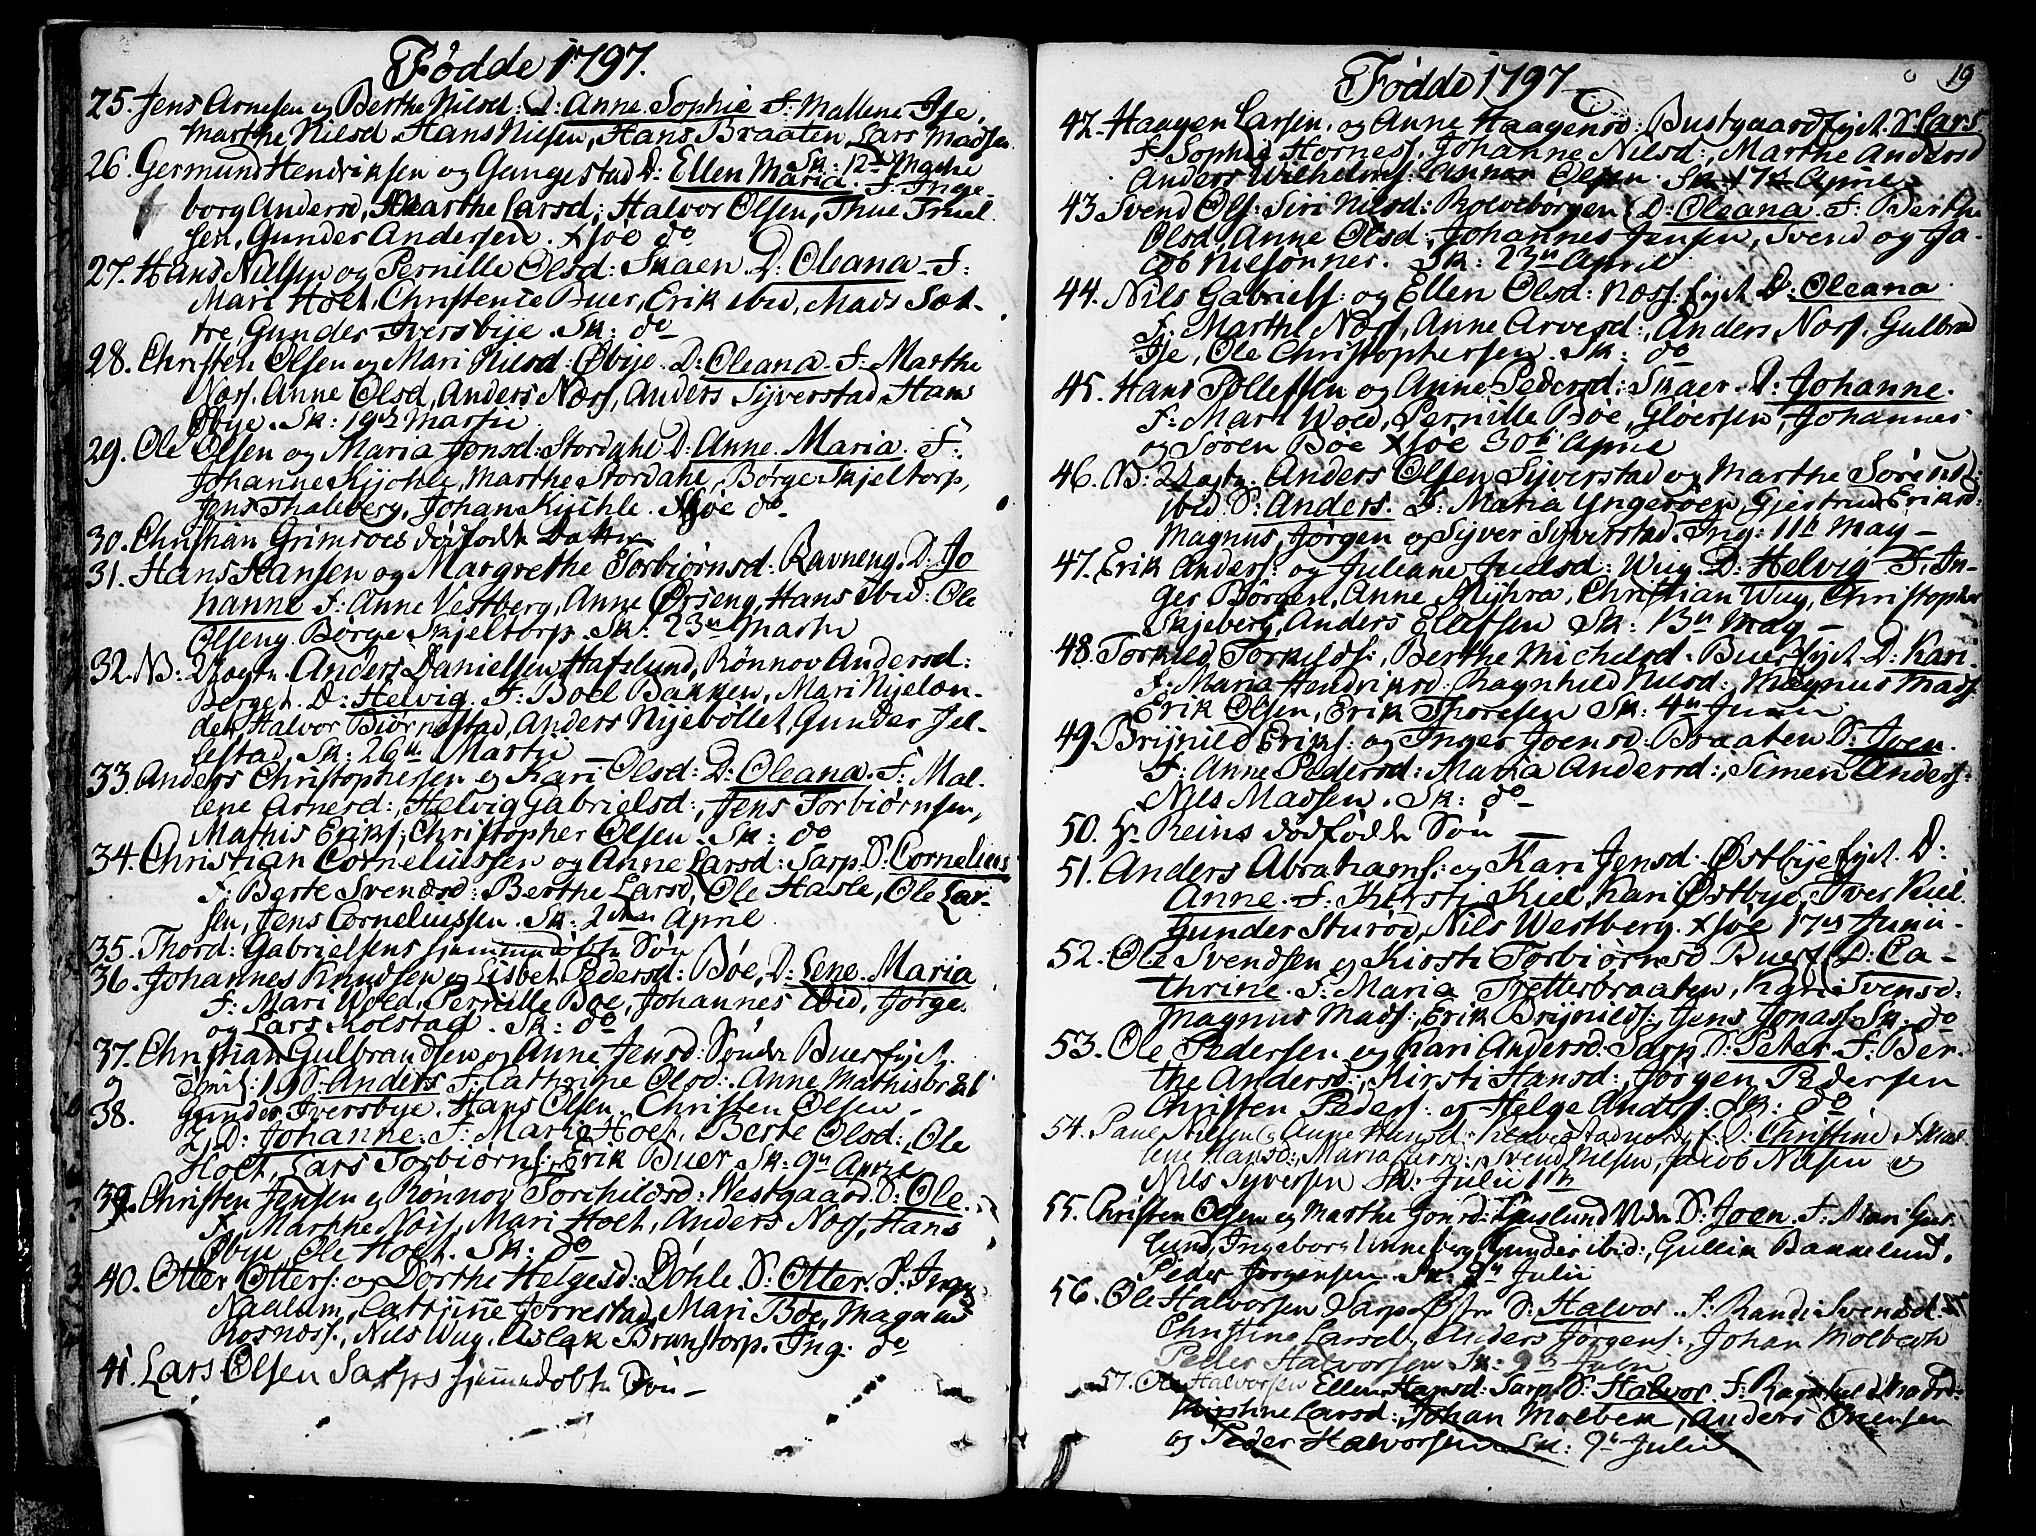 Fødde 1797.
25. Jens Arnesen og Berthe Nilsd: D: Anne Sophie F: Mallene Ise,
Marthe Nilsd, Hans Nilsen, Hans Braaten, Lars Madsen
Sk: 12te Martie
26. Germund Hendriksen og Gungestad D: Ellen Maria. F: Inge-
borg Andersd, Marthe Larsd; Halvor Olsen, Thue Truel
sen, Gunder Andersen. Xsøe do
27. Hans Nielsen og Pernille Olsd: Skaen. D: Oleana F:
Mari Hoel, Christence Buer, Erik ibid, Mads Sæt-
tre, Gunder Iversbye. Sk: do
28. Christen Olsen og Mari Nilsd: Øbye. D: Oleana. F: Marthe
Næss. Anne Olsd, Anders Næss, Anders Syverstad, Hans
Øbye. Sk: 19de Martii
29. Ole Olsen og Maria Jonsd: Stordahl D: Anne Maria. F:
Johanne Kychle, Marthe Stordahl, Børge Skjeltorp,
Jens Thaleberg, Johan Kychle. Xsøe do
30. Christian Grimsøes dødfødte Datter
31. Hans Hansen og Margrethe Torbiørnsd: Ravneng. D: Jo
hanne F: Anne Vestberg, Anne Ørseng, Hans ibid: Ole
Olseng. Børge Skjeltorp. Sk: 23n Martii
32. NB: 2 Anders Danielsen Hafslund, Rønnov Andersd:
Berget. D: Helvig. F: Boel Bakken, Mari Nijelon-
det, Halvor Biørnestad, Anders Nijebøllet, Gunder Jel-
lestad, Sk: 26n Martii
33. Anders Christophersen og Kari Olsd: D: Oleana. F: Mal-
lene Arnesd:, Helvig Gabrielsd:, Jens Torbiørnsen,
Mathis Eriks:, Christopher Olsen. Sk: do
34. Christian Corneliussen og Anne Larsd: Sarp. S: Cornelius
F: Berte Svendsd: Berthe Larsd, Ole Hasle, Ole Lar-
sen, Jens Corneliussen. Sk: 2den April
35. Thord: Gabrielsens hjemmedøbte Søn
36. Johannes Knudsen og Lisbet Pedersd: Bøe, D: Lene Maria
F: Mari Wold, Pernille Boe, Johannes ibid, Jørge
og Lars Kolstad. Sk: do
37. Christian Gulbrandsen og Anne Jensd: Søndr Buer fyet.
og Tvil: 1) S: Anders F: Cathrine Olsd:, Anne Mathisbr
38. Gunder Iversbye. Hans Olsen. Christen Olsen
2) D: Johanne. F: Marie Hoel, Berte Olsd:, Ole
Hoel, Lars Torbiørns: Erik Buer Sk: 9n April
39. Christen Jensen og Rønnov Torchildsd: Vestgaard. S: Ole.
F: Marthe Næss, Mari Hoel, Anders Næss, Hans
Øbye, Ole Hoel. Sk: do
40. Otter Otters: og Dorthe Helgesd: Døhle. S: Otter. F:
Naalum, Catrine Jorrestad, Mari Boe, Magnus
Rosness, Nils Wug. Aslak Branstorp. Ing: do
41. Lars Olsen Sarps hjemmedøbte Søn
Fødde 1797
19
42. Haagen Larsen, og Anne Haagensd: Bustgaard fyet. S: Lars
F: Sophie Horness, Johanne Nilsd:, Marthe Andersd
Anders Wilhelms: Annon Olsen. Sk: 17de April.
43 Svend Ols: Siri Nilsd: Rolvsbørgen D: Oleana. F: Berthe
Olsd, Anne Olsd:, Johannes Jensen, Svend og Ja-
cob Nilsønner. Sk: 23n April
44. Nils Gabriels: og Ellen Olsd: Næss: fyet D: Oleana.
F: Marthe Næss, Anne Arvesd:, Anders Næss, Gulbrand
Ise, Ole Christophersen. Sk: do
45. Hans Tollefsen og Anne Pedersd: Skaer. D: Johanne.
F: Mari Wold, Pernille Boe, Gloersen, Johannes
og Søren Bøe Xsøe 30te April
46. NB: 2 Anders Olsen Syverstad og Marthe Sørensd:
ibid S: Anders. F: Maria Yngeroen, Gjertrud Eriksd:
Magnus, Jørgen og Syver Syverstad. Ing: 11te May
47. Erik Anders: og Juliane Juelsd: Wug. D: Helvig. F: In-
ger Børgen, Anne Mijhra, Christian Wug, Christopher
Skjeberg, Anders Elefsen Sk: 13n May
48. Torkild Torkilds:, Berthe Michelsd: Buer fyet D: Kari.
F: Maria Hendriksd: Ragnhild Nilsd: Magnus Mads:
Erik Olsen, Erik Thoresen Sk: 4n Junii
49. Brijnild Eriks: og Inger Joensd: Braaten S: Joen.
F: Anne Pedersd: Maria Andersd:, Simen Anders:
Nils Madsen. Sk: do
50. Hr Reins dødfødte Søn
51. Anders Abrahams: og Kari Jensd: Østbije fyet. D:
Anne. F: Kirsti Kiel, Kari Østbije, Iver Kiel.
Gunder Sturød, Nils Westberg. Xsøe 17de Junii
52. Ole Svendsen og Kirsti Torbiørnsd Buer D: Ca-
thrine. F: Maria Tretterbraaten, Kari Svensd:
Magnus Mads:, Erik Brijnilds:, Jens Jonas: Sk: do
53. Ole Pedersen og Kari Andersd: Sarp S: Peter F: Ber-
the Andersd:, Kirsti Hansd:, Jørgen Pedersen
Christen Peders: og Helge Anders: Sk: do
54. Paul Nilsen og Anne Hansd: D: Christine F: Mal
lene Hansd:, Maria Larsd:, Svend Nilsen, Jacob Nilsen og
Nils Syversen Sk: Julii
55. Christen Olsen og Marthe Jonsd: Guslund Neder S: Joen. F: Mari Gus
lund, Ingeborg Unneberg, Gunder ibid:, Gullik Bakkelund,
Peder Jørgensen. Sk: 9n Julii
56. Ole Halvorsen Varp Østr S: Halvor. F: Randi Svendsd.
Christine Larsd:, Anders Jørgens:, Johan Molbech
Peder Halvorsen Sk: 9n Julii
57. Ole Halvorsen Ellen Hansd: Sarp S: Halvor. F: Ragnhild
Kirstine Larsd: Johan Molbek, Anders
og Peder Halvorsen Sk: 9n Julii